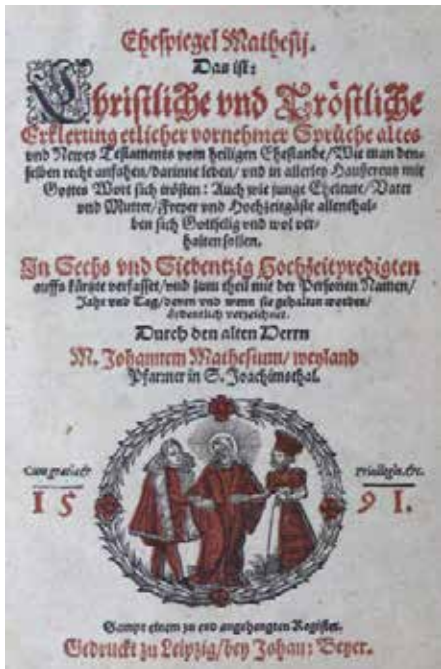 Ehespiegel Mathesij.
Das ist:
Christliche vnd Tröstliche
Erklerung etlicher vornehmer Sprüche altes
vnd Newes Testaments vom heiligen Ehestande/Wie man den-
selben recht anfahen/darinne leben/vnd in allerley Hauskreutz mit
Gottes Wort sich trösten: Auch wie junge Eheleute/Vater
vnd Mutter/Freyer vnd Hochzeitgäste allenthal-
ben sich Gottselig vnd wol ver-
halten sollen.
In Sechs vnd Siebentzig Hochzeitpredigten
auffs kürtzte verfasset/vnd zum theil mit der Personen Namen/
Jahr vnd Tag/denen vnd wenn sie gehalten worden/
ördentlich verzeichnet.
Durch den alten Herrn
M. Johannem Mathesium/weyland
Pfarrner in S. Joachimsthal.
Cum gratia & Priuilegio, &c.
15 91.
Sampt einem zu end angehengten Register.
Gedruckt zu Leipzig/bey Johan: Beyer.